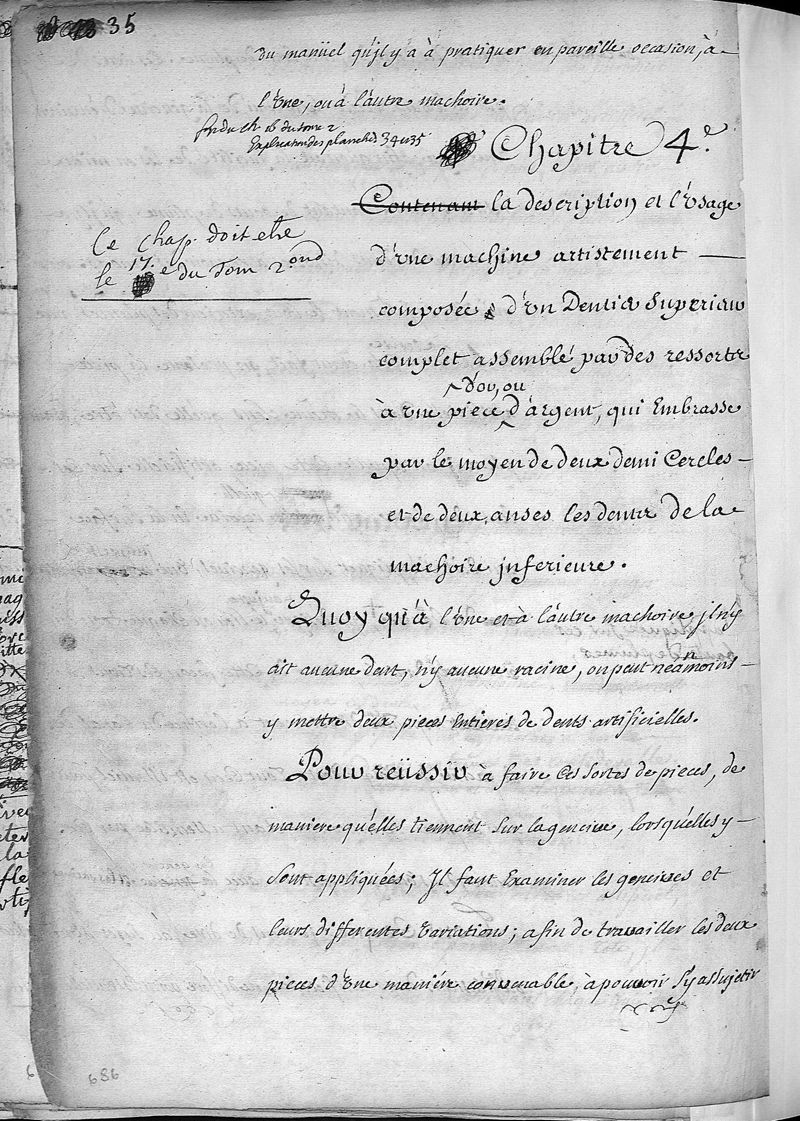 35
du manüel qu'jl y a à pratiquer en pareille occasion, à
l'une, ou à l'autre machoire.
fin du ch 16 du tome 2
Explication des planches 34 et 35
Chapitre 4.e
Contenant la description et l'usage
Ce chap. doit etre
le 17.e du Tom 2.ond
d'une machine artistement
composée d'un Dentier Superieur
complet assemblé par des ressorts
d'or, ou
à une piece d'argent, qui Embrasse
par le moyen de deux demi Cercles
et de deux anses les dents de la
machoire jnferieure.
Quoy qu'à l'une et à l'autre machoire jl n'y
ait aucune dent, n'y aucune racine, on peut neamoins
y mettre deux pieces Entieres de dents artificielles.
Pour reüssir à faire Ces Sortes de pieces, de
maniere qu'elles tiennent sur la gencive, lorsqu'elles y
Sont appliquées; Jl faut Examiner les gencives et
leurs differentes variations; afin de travailler les deux
pieces d'une maniére convenable, à pouvoir s'y assujetir
686